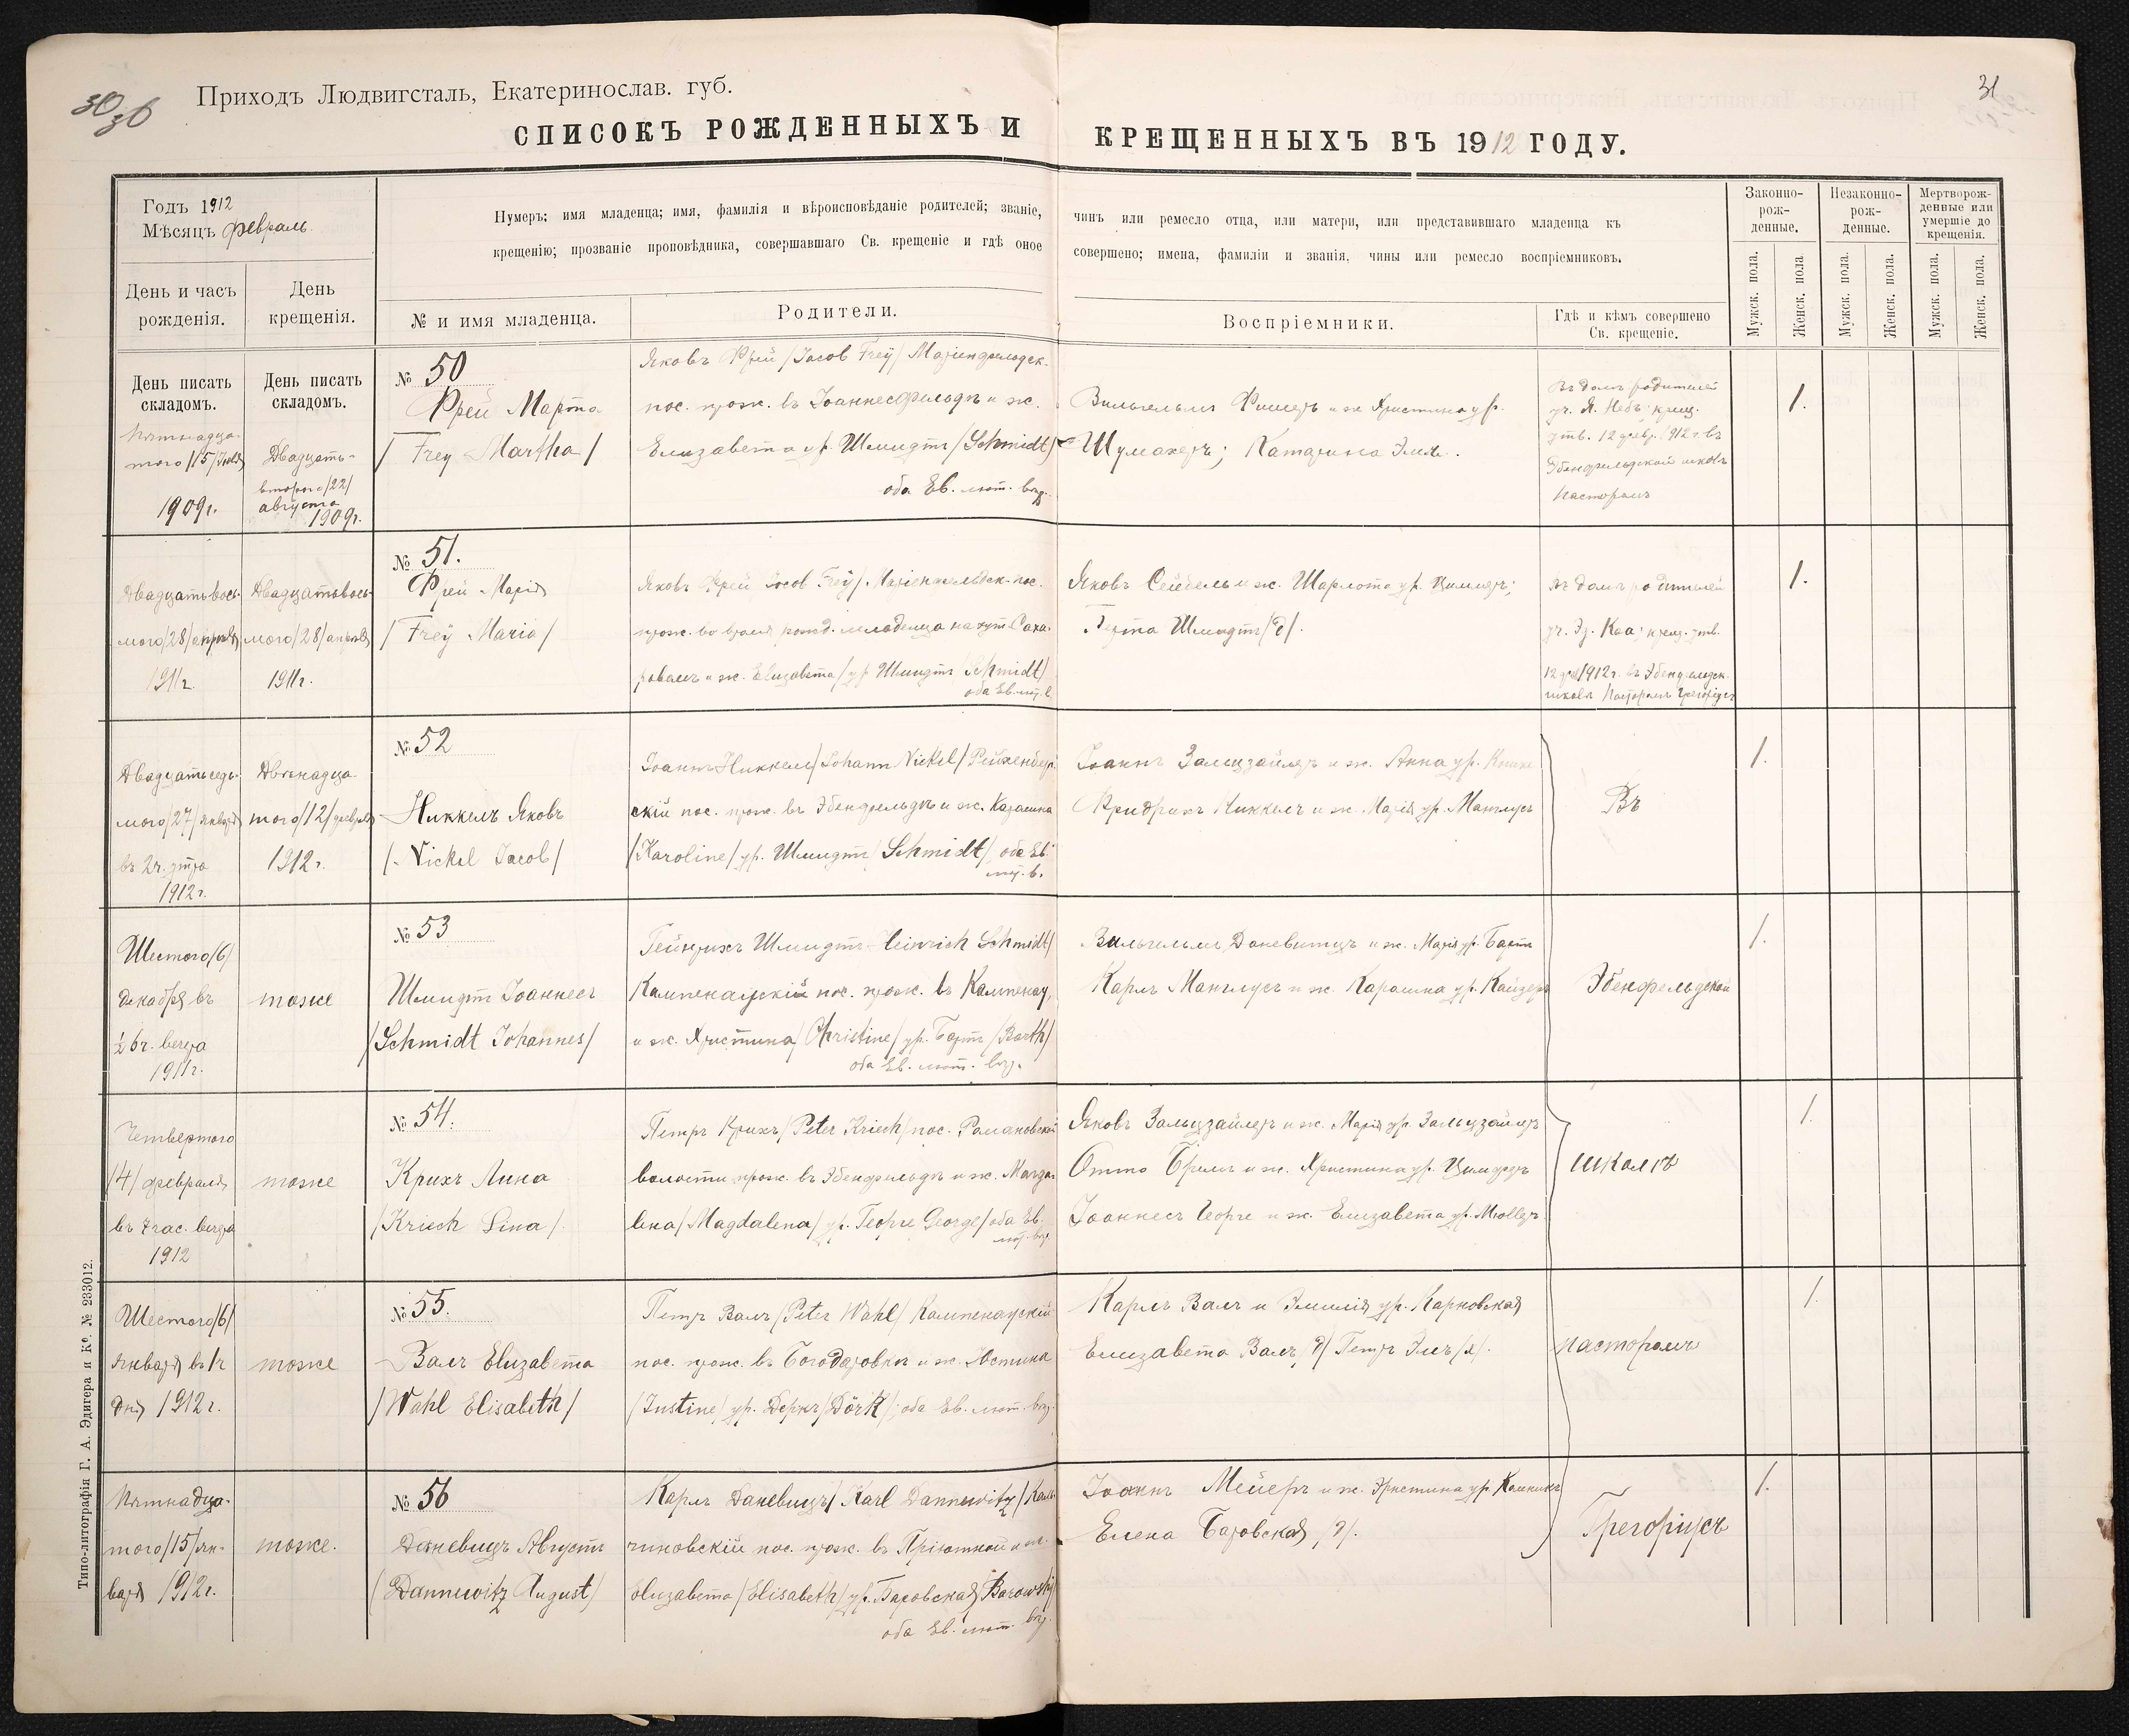 30
30
Приходъ Людвигсталь, Екатеринослав. губ.
31
СПИСОКЪ РОЖДЕННЫХЪ И КРЕЩЕННЫХЪ ВЪ 1912 ГОДУ.
Годъ 1912
Мѣсяцъ февраль.
Нумеръ; имя младенца; имя, фамилія и вѣроисповѣданіе родителей; званіе, чинъ или ремесло отца, или матери, или представившаго младенца къ
крещенію; прозваніе проповѣдника, совершавшаго Св. крещеніе и гдѣ оное совершено; имена, фамиліи и званія, чины или ремесло воспріемниковъ.
Законно-
рож-
денные.
Незаконно-
рож-
денные.
Мертворож-
денные или
умершіе до
крещенія.
День и часъ
рожденія.
День
крещенія.
№ и имя младенца.
Родители.
Воспріемники.
Гдѣ и кѣмъ совершено
Св. крещеніе.
Мужск. пола.
Женск. пола
Мужск. пола.
Женск. пола.
Мужск. пола.
Женск. пола.
День писать
складомъ.
День писать
складомъ.
Пятнадца-
таго /15/ Іюля
1909г.
Двадцать-
второго /22/
августа
1909г.
№ 50
Фрей Марта
/ Frey Martha /
Яковъ Фрей /Jacob Frey/ Маріенфельдск.
пос. прож. въ Іоаннесфельдѣ и ж.
Елизавета ур. Шмидтъ /Schmidt/
оба Ев. лют. вѣр.
Вильгельмъ Фишеръ и ж Христина ур.
Шумахеръ; Катарина
Въ домѣ родителей
уч. Я. Небъ; крещ.
утв. 12 февр. 1912 г. въ
Эбенфельдской школѣ
Пасторомъ
1.
Двадцатьвось-
мого /28/ апрѣля
1911г.
Двадцатьвось-
мого /28/ апрѣля
1911г.
№ 51.
Фрей Марія
/ Frey Maria /
Яковъ Фрей Jacob Frey/ Маріенфельдск. пос.
прож. во время рожд. младенца на хут. Саха-
ровомъ и ж. Елизавета / ур Шмидтъ Schmidt/
оба Ев. лют. в.
Яковъ Сейбель и ж. Шарлота ур. Циммеръ;
Берта Шмидтъ /д/.
въ домѣ родителей
уч. Эд. Каа; крещ. утв.
12 фев 1912 г. въ Эбенфельдск.
школѣ Пасторомъ Грегоріусъ
1.
Двадцатьседь-
мого /27/ января
въ 2 ч. утра
1912 г.
Двѣнадца-
таго /12/ февраля
1912 г.
№ 52
Никкель Яковъ
/. Nickel Jacob /
Іоаннъ Никкель /Johann Nickel/ Рейхенберг-
скій пос. прож. въ Эбенфельдѣ и ж. Каролина
/Karoline/ ур. Шмидтъ / Schmidt/, оба Ев.
лют. в.
Іоаннъ Зальцзайлеръ и ж. Анна ур.
Фридрихъ Никкель и ж. Марія ур. Манглусъ
Въ
1.
Шестого /6/
декабря въ
½ 6 ч. вечера
1911 г.
тоже
№ 53
Шмидтъ Іоаннесъ
/Schmidt Johannes/
Гейнрихъ Шмидтъ Heinrich Schmidt/
Кампенаускій пос. прож. въ Кампенау,
и ж. Христина / Christine/ ур. Бартъ /Barth/
оба Ев. лют. вѣр.
Вильгельмъ Даневицъ и ж. Марія ур. Бартъ
Карлъ Манглусъ и ж. Каролина ур. Кайзеръ
Эбенфельдской
1.
Четвертого
/4/ февраля
въ 7 час. вечера
1912
тоже
№ 54.
Крихъ Лина
/Kriech Lina /
Петръ Крихъ /Peter Kriech/ пос. Романовской
волости прож. въ Эбенфельдѣ и ж. Магда-
лена /Magdalena/ ур. Георге George/ оба Ев.
лют. вѣр.
Яковъ Зальцзайлеръ и ж. Марія ур. Зальцзайлеръ
Отто Брилъ и ж. Христина ур.
Іоаннесъ Георге и ж. Елизавета ур. Мюллеръ
школѣ
1.
Шестого /6/
января въ 1 ч
дня 1912 г.
тоже
№ 55.
Валъ Елизавета
/Wahl Elisabeth /
Петръ Валъ /Peter Wahl/ Кампенаускій
пос. прож. въ Богодаровкѣ и ж. Юстина
/Justine/ ур. Деркъ /Dörk/; оба Ев. лют. вѣр.
Карлъ Валъ и Эмилія ур. Карковская
Елизавета Валъ /д/ Петръ /х/.
Пасторомъ
1.
Пятнадца-
таго /15/ ян-
варя 1912 г.
тоже.
№ 56
Даневицъ Августъ
(Dannewitz August/
Карлъ Даневицъ / Karl Dannewitz / Каль-
чиновскій пос. прож. въ Пріютной и ж.
Елизавета /Elisabeth/ ур. Баровская / Barowsky/
оба Ев. лют. вѣр.
Іоаннъ Мейеръ и ж. Христина ур.
Елена Баровская /д/.
Грегоріусъ
1.
Типо-литографія Г. А. Эдигера и Кº. № 233012.